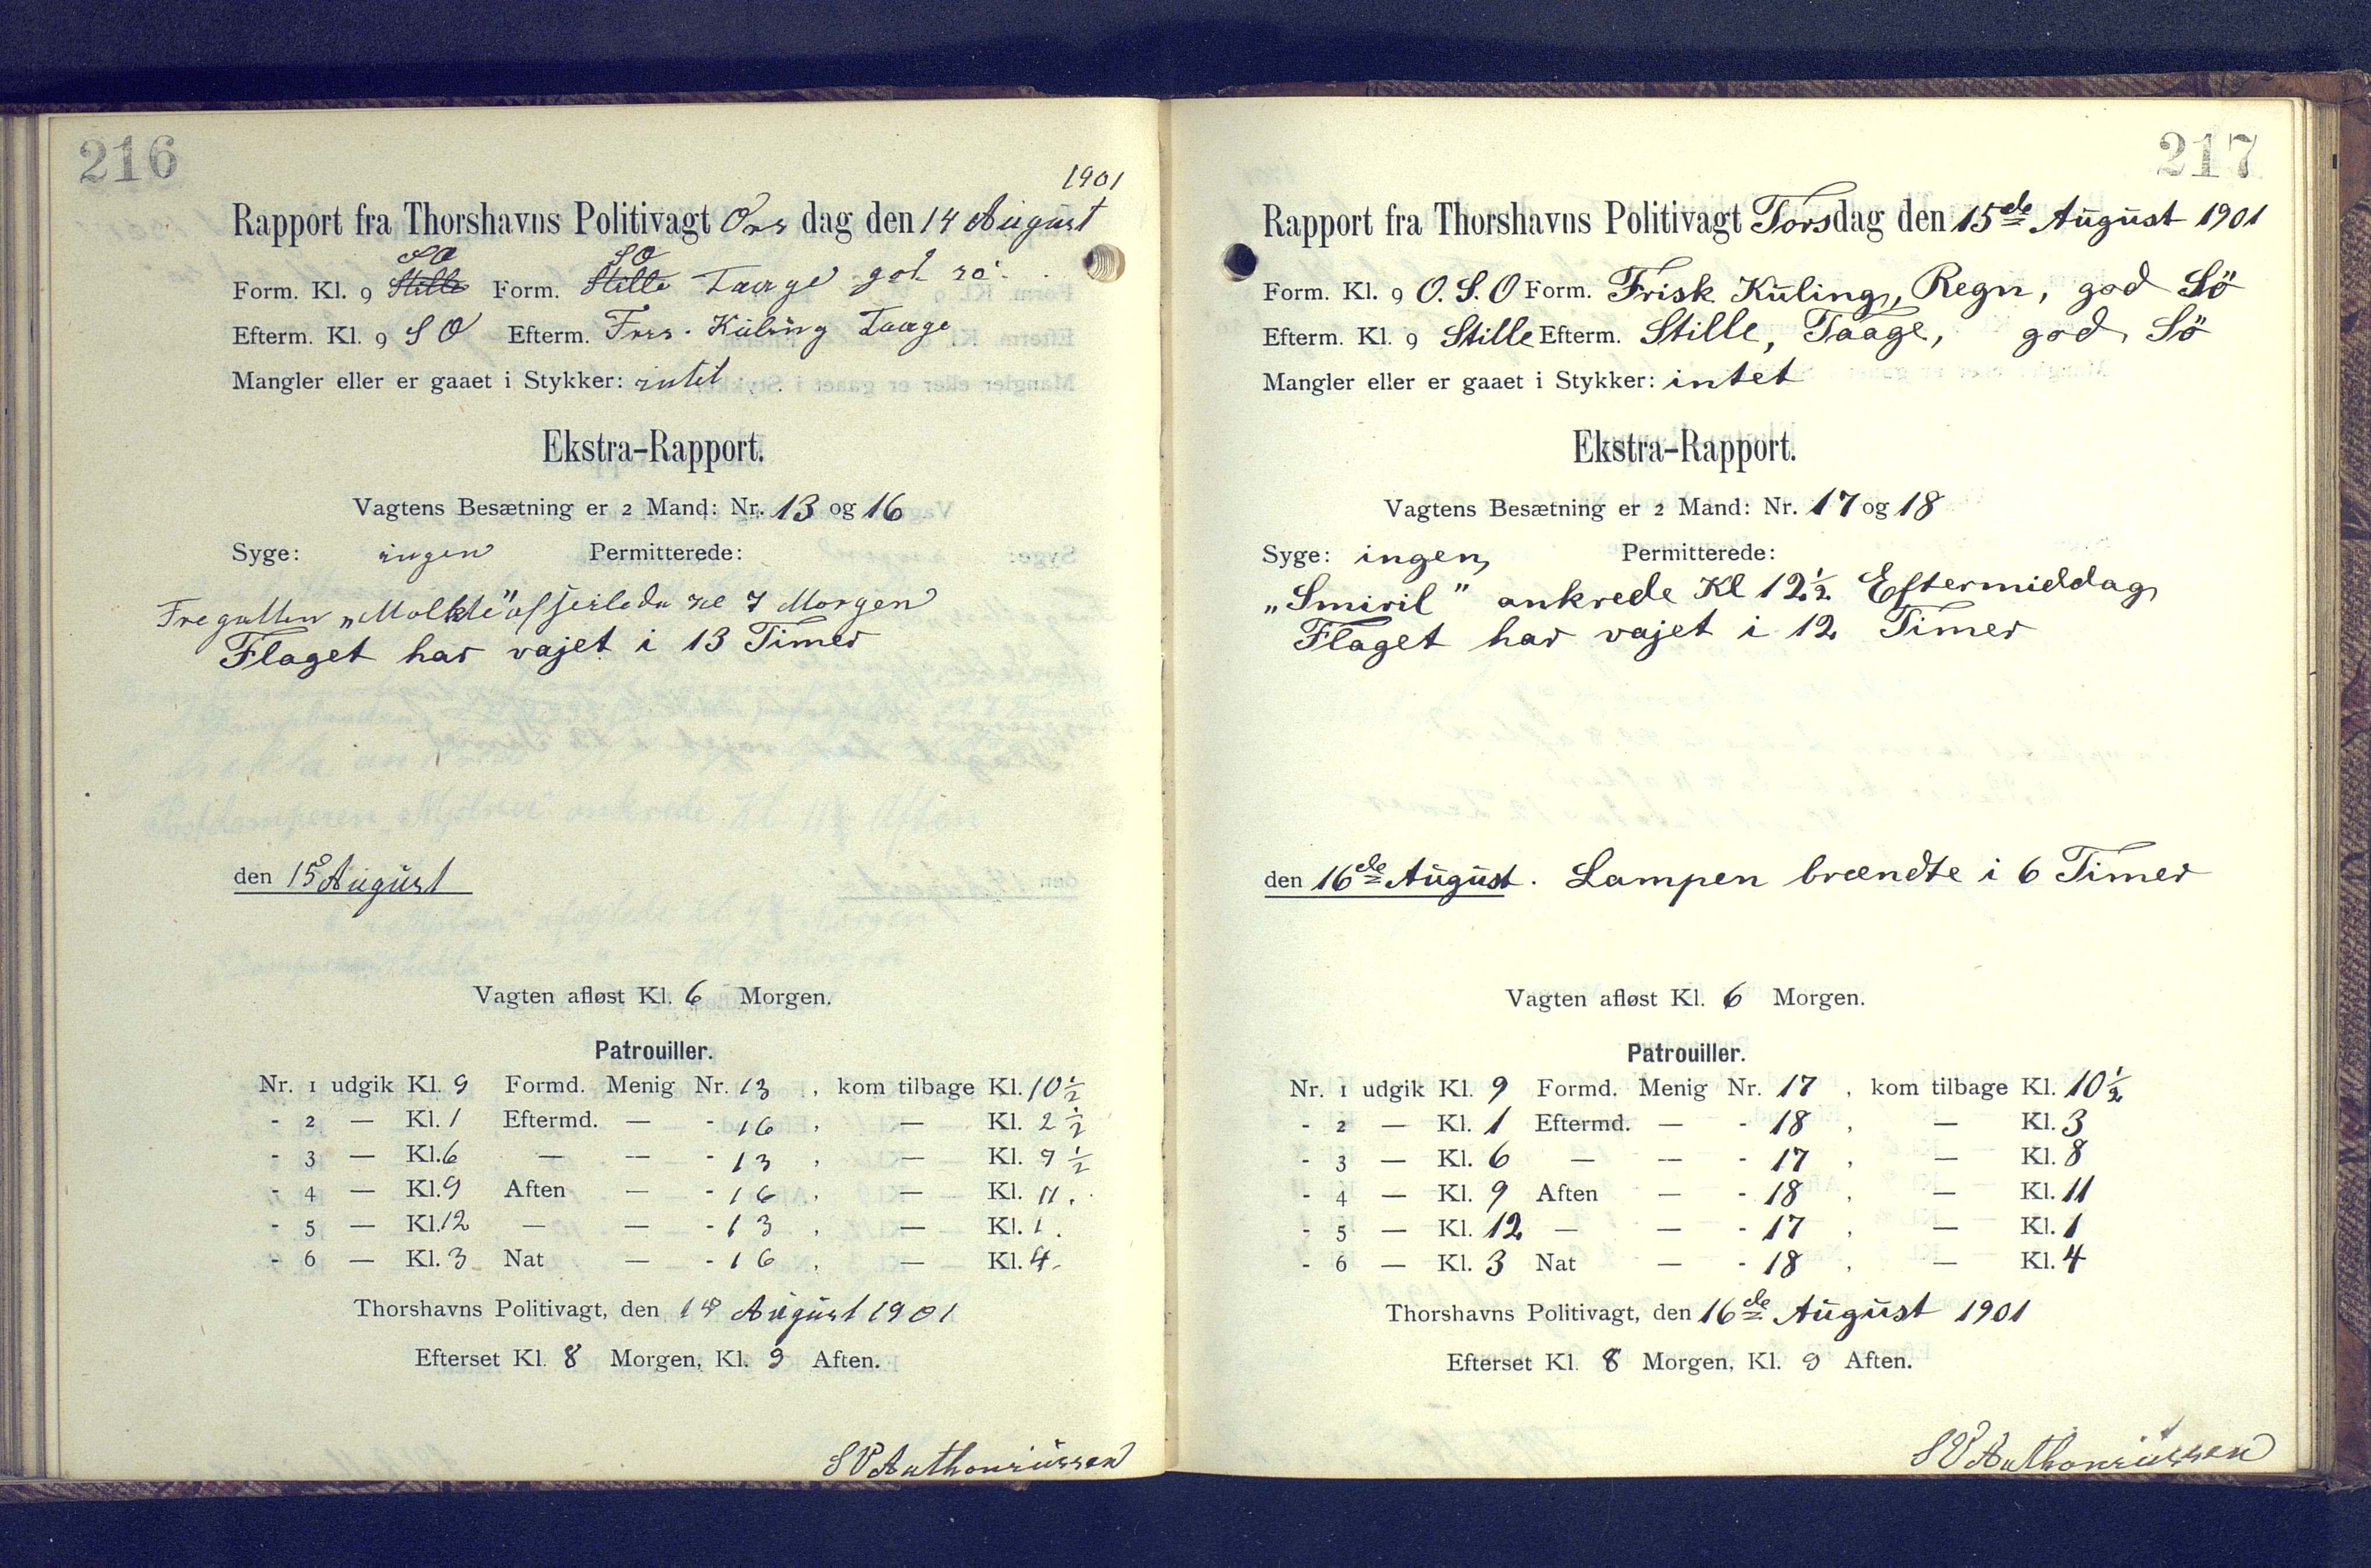 216
1901
Rapport fra Thorshavns Politivagt Ons dag den 14 August
SO SO
Form. Kl. 9 Stille Form. Stille Taage god sö
Efterm. Kl. 9 SO Efterm. Fris. Kuling Taage
Mangler eller er gaaet i Stykker: intet
Ekstra-Rapport.
Vagtens Besætning er 2 Mand: Nr. 13 og 16
Syge: ingen Permitterede:
Fregatten „Molkte" afseilede kl 7 Morgen
Flaget har vajet i 13 Timer
den 15 August
Vagten afløst Kl. 6 Morgen.
Patrouiller.
Nr. 1 udgik Kl. 9 Formd. Menig Nr. 13, kom tilbage Kl. 10½
- 2 — Kl. 1 Eftermd. — - 16, — Kl. 2½
- 3 — Kl. 6 — — - 13, — Kl. 7½
- 4 — Kl. 9 Aften — - 16, — Kl. 11.
- 5 — Kl. 12 — — - 13, — Kl. 1.
- 6 — Kl. 3 Nat — - 16, — Kl. 4.
Thorshavns Politivagt, den August 1901
Efterset Kl. 8 Morgen, Kl. 9 Aften.
SP Anthoniussen
217
Rapport fra Thorshavns Politivagt Torsdag den 15de August 1901
Form. Kl. 9 O.S.O Form. Frisk Kuling, Regn, god Sö
Efterm. Kl. 9 Stille Efterm. Stille, Taage, god Sö
Mangler eller er gaaet i Stykker: intet
Ekstra-Rapport.
Vagtens Besætning er 2 Mand: Nr. 17 og 18
Syge: ingen Permitterede:
„Smiril" ankrede Kl 12½ Eftermiddag
Flaget har vajet i 12 Timer
den 16de August. Lampen brændte i 6 Timer
Vagten afløst Kl. 6 Morgen.
Patrouiller.
Nr. 1 udgik Kl. 9 Formd. Menig Nr. 17, kom tilbage Kl. 10½
- 2 — Kl. 1 Eftermd. — - 18, — Kl. 3
- 3 — Kl. 6 — — - 17, — Kl. 8
- 4 — Kl. 9 Aften — - 18, — Kl. 11
- 5 — Kl. 12 — — - 17, — Kl. 1
- 6 — Kl. 3 Nat — - 18, — Kl. 4
Thorshavns Politivagt, den 16de August 1901
Efterset Kl. 8 Morgen, Kl. 9 Aften.
SP Anthoniussen